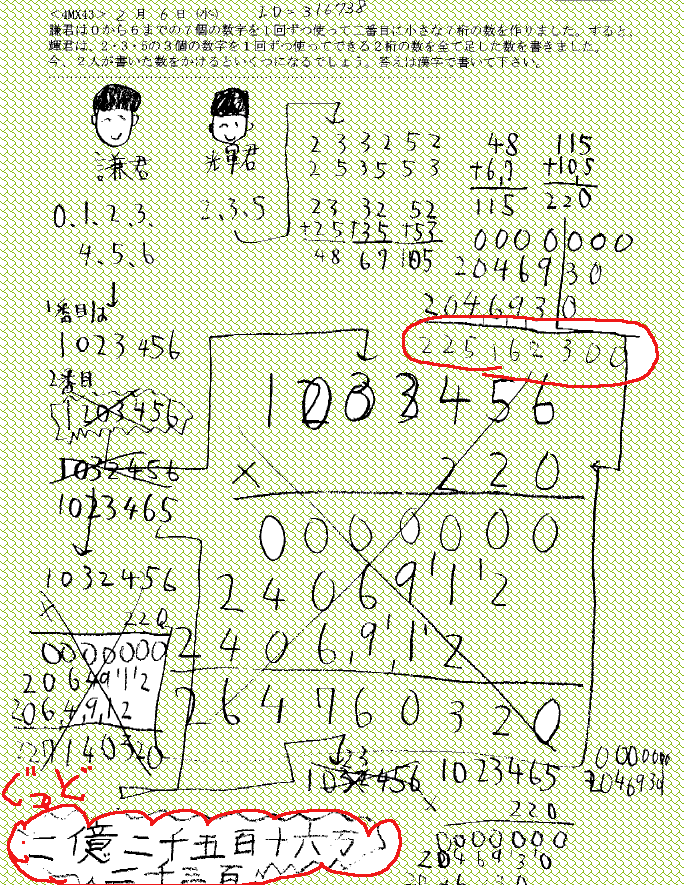 <4MX43> 2月6日(水) ID=316738
謙君は0から6までの7個の数字を1回ずつ使って二番目に小さな7桁の数を作りました。すると、
輝君は、2・3・5の3個の数字を1回ずつ使ってできる2桁の数を全て足した数を書きました。
今、2人が書いた数をかけるといくつになるでしょう。答えは漢字で書いて下さい。
謙君
輝君
0、1、2、3、
4、5、6
2、3、5
23 32 52
25 35 53
23 32 52
+25 +35 +53
48 67 105
48
+67
115
115
+105
220
0000000
2046930
2046930
225162300
1番目は
1023456
2番目
1203456
1032456
1023465
1033456
×220
0000000
2406912
2406912
264760320
1032456
×220
0000000
2064912
2064912
227140320
1023465
220
0000000
2046930
ぐっど
二億二千五百十六万
二千三百